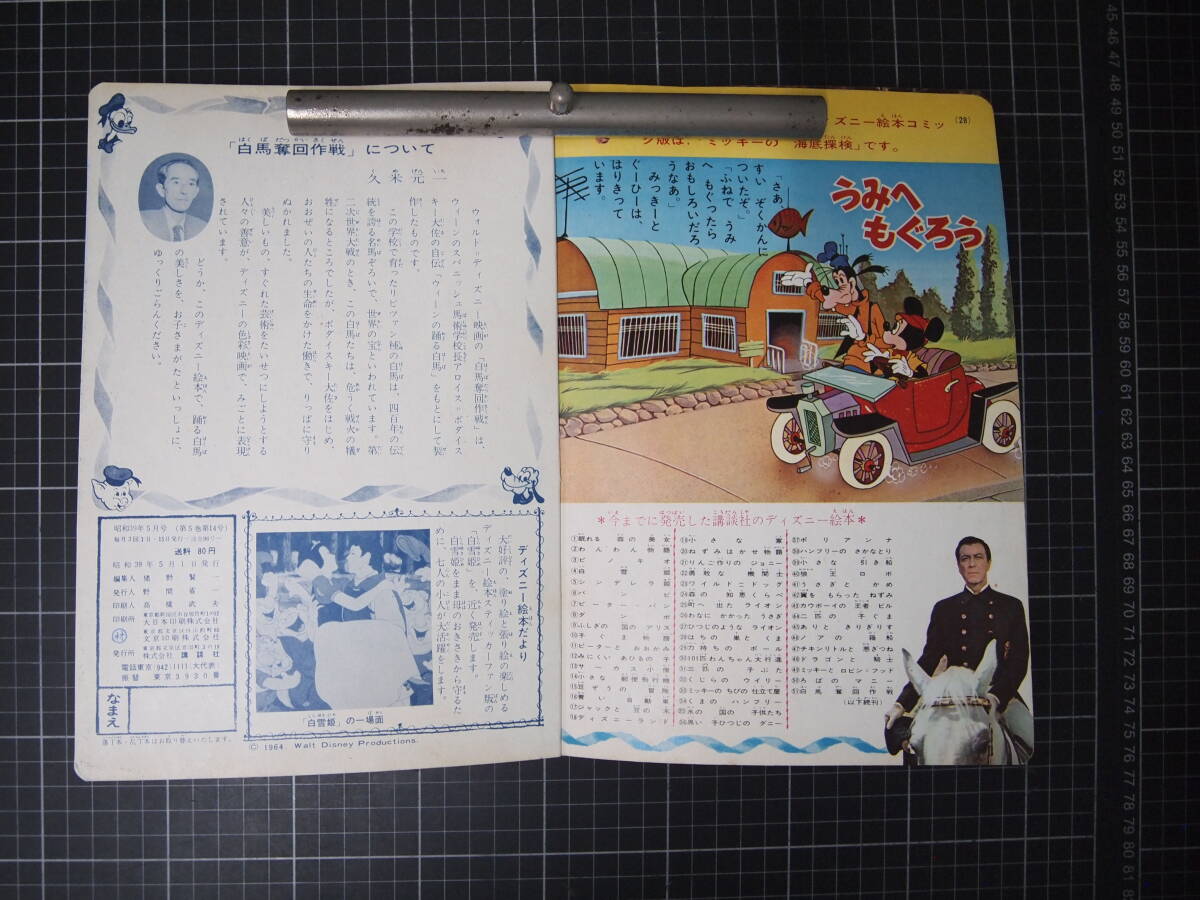 「白馬奪回作戦」について
久米元一
ウォルト=ディズニー映画の「白馬奪回作戦」は、
ウィーンのスパニッシュ馬術学校長アロイス=ポダイス
キー大佐の自伝「ウィーンの踊る白馬」をもとにして製
作したものです。
この学校で育ったリピツァン種の白馬は、四百年の伝
統を誇る名馬ぞろいで、世界の宝といわれています。第
二次世界大戦のとき、この白馬たちは、危うく戦火の犠
牲になるところでしたが、ポダイスキー大佐をはじめ、
おおぜいの人たちの生命をかけた働きで、りっぱに守り
ぬかれました。
美しいもの、すぐれた芸術をたいせつにしようとする
人々の善意が、ディズニーの色彩映画で、みごとに表現
されています。
どうか、このディズニー絵本で、踊る白馬
の美しさを、お子さまがたといっしょに、
ゆっくりごらんください。
昭和39年5月号 (第5巻第14号)
送料 80円
昭和39年5月1日発行
編集人 猪野賢一
発行人 野間省一
印刷人 高橋武夫
印刷所
大日本印刷株式会社
文京印刷株式会社
発行所
株式会社 講談社
電話東京(942)1111(大代表)
振替 東京3930番
なまえ
落丁本・乱丁本はお取り替えいたします。
ディズニー絵本だより
大好評の、塗り絵と張り絵の楽しめる
ディズニー絵本スティッカーファン版の
「白雪姫」を、近く発売します。
白雪姫をまま母のおきさきから守るた
めに、七人の小人が大活躍をします。
「白雪姫」の一場面
© 1964 Walt Disney Productions.
ズニー絵本コミッ
(28)
ク版は、"ミッキーの 海底探検"です。
うみへ
もぐろう
「さあ、
すい ぞくかんに
ついたぞ。」
「ふねで うみ
へ もぐったら
おもしろいだろ
うなあ。」
みっきーと
ぐーひーは、
はりきって
います。
*今までに発売した講談社のディズニー絵本*
①眠れる 森の美女
②わんわん物語
③ピノキオ
④白雪姫
⑤シンデレラ姫
⑥バンビ
⑦ピーター・パン
⑧ダンボ
⑨ふしぎの国のアリス
⑩子ぶた物語
⑪ピーターと おおかみ
⑫みにくい あひるの子
⑬サーカス小僧
⑭小さな 郵便飛行機
⑮豆ぞうの 冒険
⑯青い 自動車
⑰ジャックと 豆の木
⑱ディズニーランド
⑲小さな家
⑳ねずみはかせ物語
㉑りんご作りの ジョニー
㉒勇敢な 機関士
㉓ワイルドこドッグ
㉔森の 知恵くらべ
㉕町へ出た ライオン
㉖わなに かかった うさぎ
㉗ひつじのような ライオン
㉘はちの巣と くま
㉙力持ちの ポール
㉚101匹わんちゃん大行進
㉛三匹の 子ぶた
㉜くじらの ウイリー
㉝ミッキーの ちびの 仕立て屋
㉞くまの ハンフリー
㉟水の 国の 子供たち
㊱黒い 子ひつじの ダニー
㊲ポリアンナ
㊳ハンフリーの さかなとり
㊴小さな 引き船
㊵狼王ロボ
㊶うさぎと かめ
㊷翼を もらった ねずみ
㊸カウボーイの 王者 ビル
㊹二匹の 子ぐま
㊺ありと きりぎりす
㊻ノアの 箱船
㊼チキンリトルと 悪ぎつね
㊽ドラゴンと 騎士
㊾ミッキーと ロビン・フッド
㊿ろばの マニー
51白馬奪回作戦
(以下続刊)